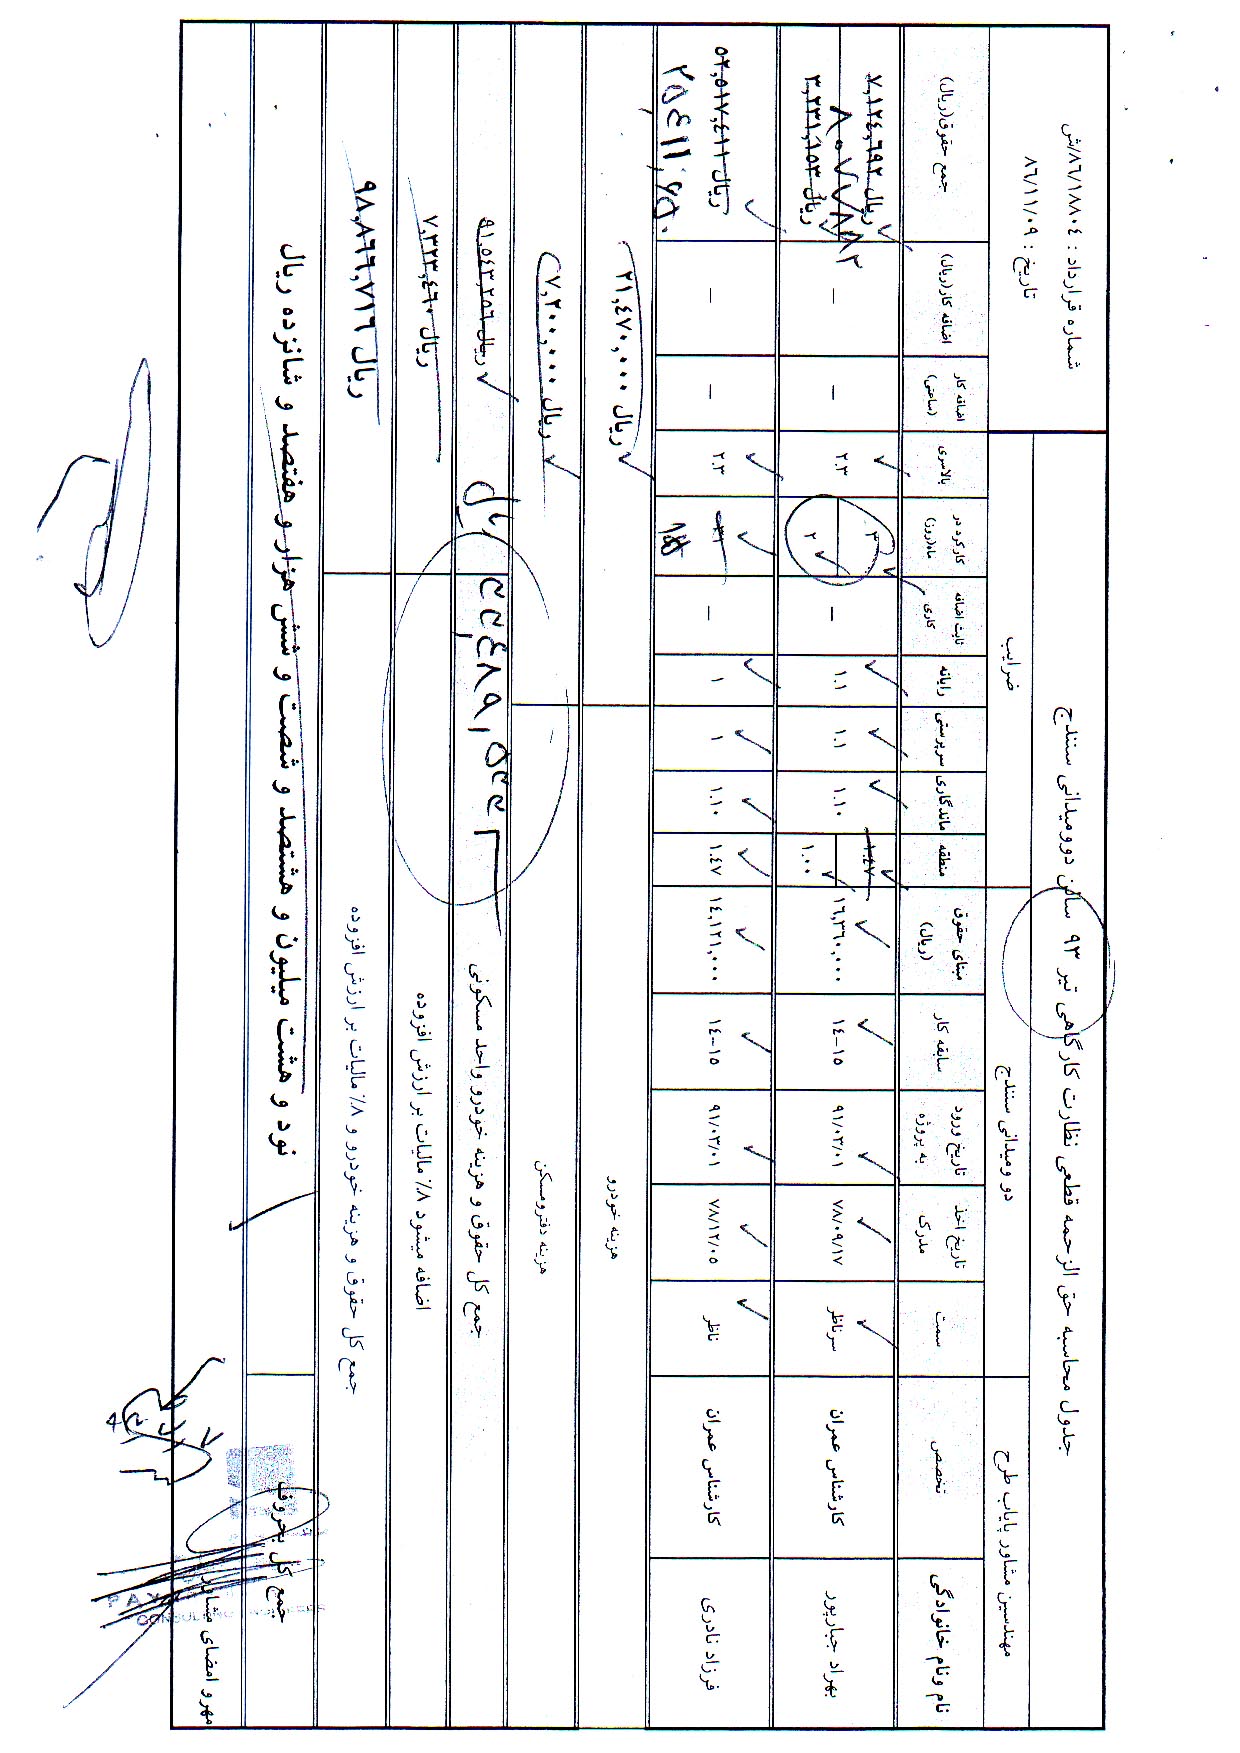 جدول محاسبه حق الزحمه قطعی نظارت کارگاهی تیر ۹۳ سالن دوومیدانی سنندج
شماره قرارداد : ۸۶/۱۸۸۰۴/ش
تاریخ : ۸۶/۱۱/۰۹
مهندسین مشاور پایاب طرح
دو ومیدانی سنندج
ضرایب
نام ونام خانوادگی
تخصص
سمت
تاریخ اخذ مدرک
تاریخ ورود به پروژه
سابقه کار
مبنای حقوق (ریال)
منطقه
ماندگاری
سرپرستی
رایانه
ثابت اضافه کاری
کارکرد در ماه(روز)
بالاسری
اضافه کار (ساعتی)
اضافه کار(ریال)
جمع حقوق(ریال)
بهراد جبارپور
کارشناس عمران
سرناظر
۷۸/۰۹/۱۷
۹۱/۰۳/۰۱
۱۴-۱۵
۱۶,۳۶۰,۰۰۰
۱.۴۷
۱.۰۰
۱.۱۰
۱.۱
۱.۱
—
۳
۲
۲.۳
—
—
۷,۱۲٤,٦۹۲ ریال
۳,۲۳۱,۱۵۳ ریال
۸۰۷۷۸۸۲
فرزاد نادری
کارشناس عمران
ناظر
۷۸/۱۲/۰۵
۹۱/۰۳/۰۱
۱۴-۱۵
۱۴,۱۲۱,۰۰۰
۱.۴۷
۱.۱۰
۱
۱
—
۳۱
۱۵
۲.۳
—
—
۵۲,۵۱۷,٤۱۱ ریال
۲۵٤۱۱,٦۵۰
هزینه خودرو
۲۱,٤۷۰,۰۰۰ ریال
هزینه دفترومسکن
۷,۲۰۰,۰۰۰ ریال
جمع کل حقوق و هزینه خودرو واحد مسکونی
۹۱,۵٤۳,۲۵٦ ریال
ریال
اضافه میشود ۸٪ مالیات بر ارزش افزوده
۷,۳۲۳,٤٦۰ ریال
جمع کل حقوق و هزینه خودرو و ۸٪ مالیات بر ارزش افزوده
۹۸,۸٦٦,۷۱٦ ریال
جمع کل بحروف
نود و هشت میلیون و هشتصد و شصت و شش هزار و هفتصد و شانزده ریال
مهرو امضای مشاور